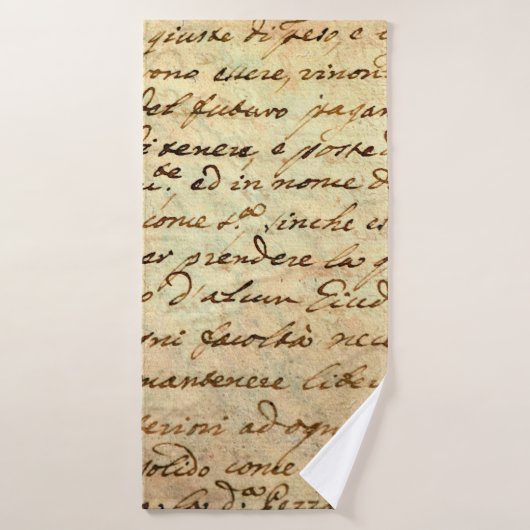 giuste di peso, e
vono essere, rinon
del futuro pagar
di tenere e poste d
te
ed in nome d
come s.ª sinche es
er prendere la
o d'alcun Giud
gni facoltà nec
mantenere liber
feriori ad ogn
solido come